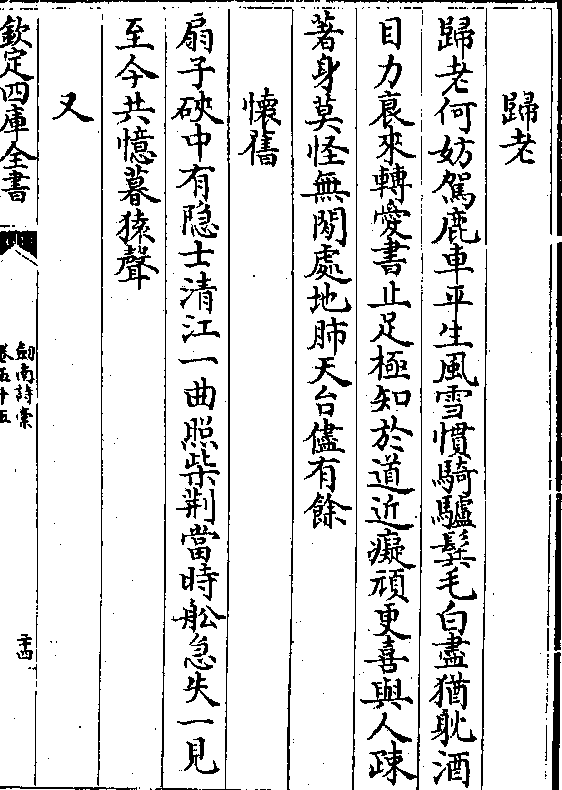 歸老
歸老何妨駕鹿車平生風雪慣騎驢鬓毛白盡猶躭酒
目力衰來轉愛書止足極知於道近癡頑更喜與人疎
著身莫怪無閑處地肺天台儘有餘
懷舊
扇子硤中有隐士清江一曲照柴荆當時舩急失一見
至今共憶暮猿聲
又
欽定四庫全書
劔南詩槀
卷五十五
二十四